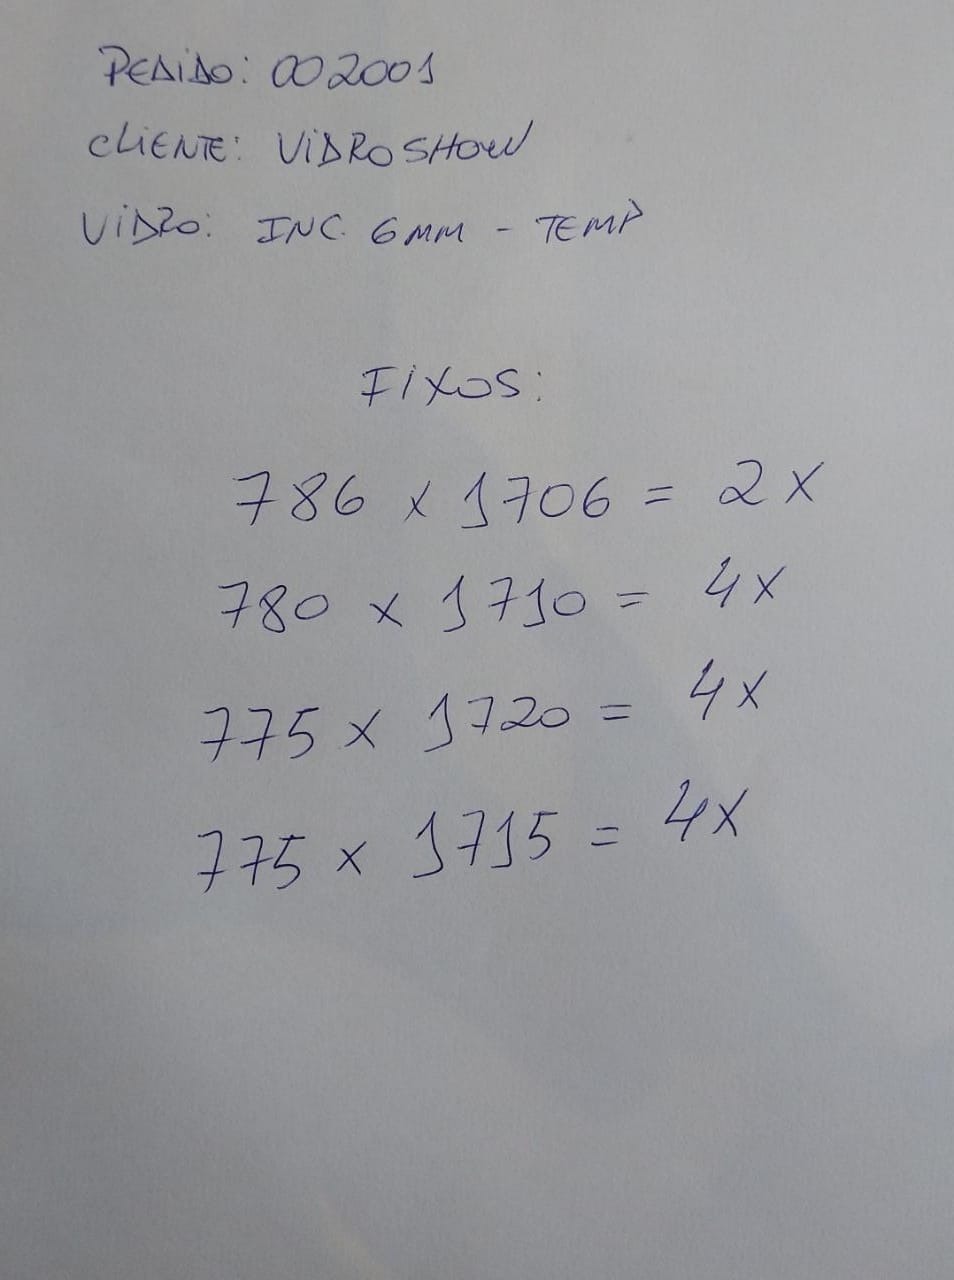 PEDIDO: 002001
CLIENTE: VIDRO SHOW
VIDRO: INC. 6MM - TEMP
FIXOS:
786 x 1706 = 2x
780 x 1710 = 4x
775 x 1720 = 4x
775 x 1715 = 4x